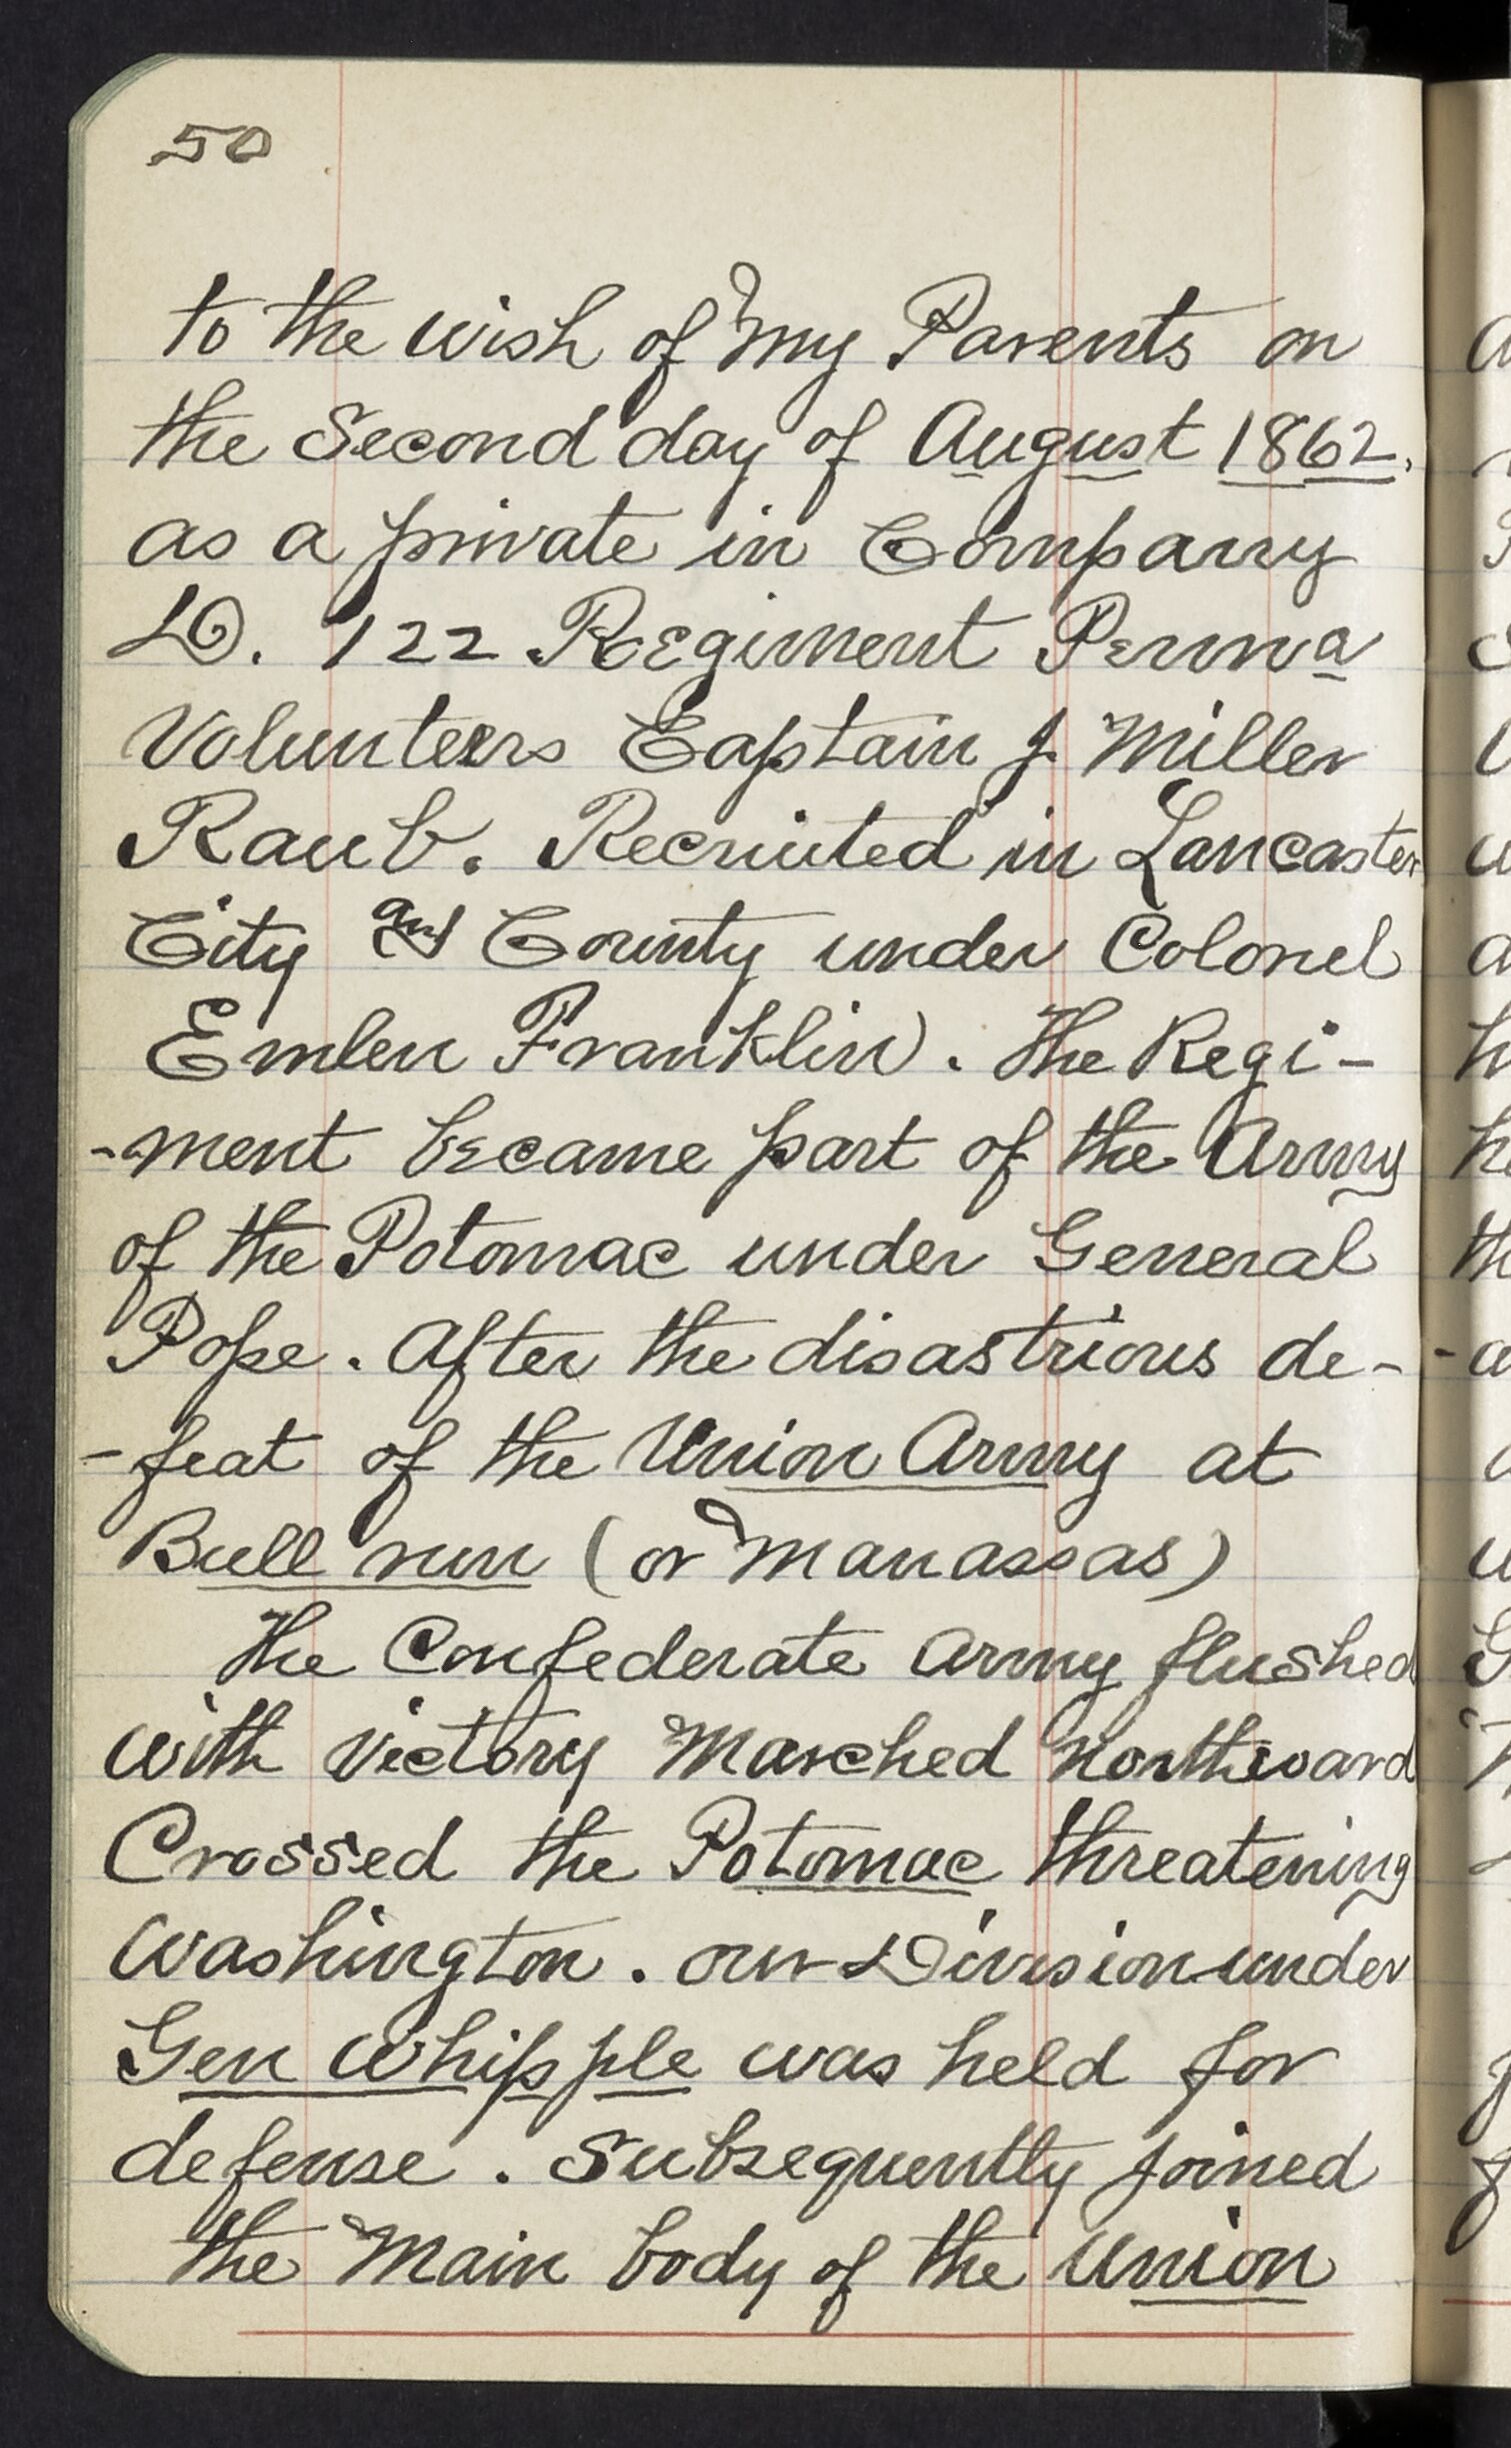 50
to the wish of My Parents on
the Second day of August 1862.
as a private in Company
D. 122 Regiment Penna
Volunteers Captain J. Miller
Raub. Recruited in Lancaster
City and County under Colonel
Emlen Franklin. The Regi-
-ment became part of the Army
of the Potomac under General
Pope. After the disastrious de-
-feat of the Union Army at
Bull run (or Manassas)
The Confederate Army flushed
with victory Marched Northward
Crossed the Potomac threatening
Washington. our Division under
Gen Whipple was held for
defense. Subsequently joined
the Main body of the Union